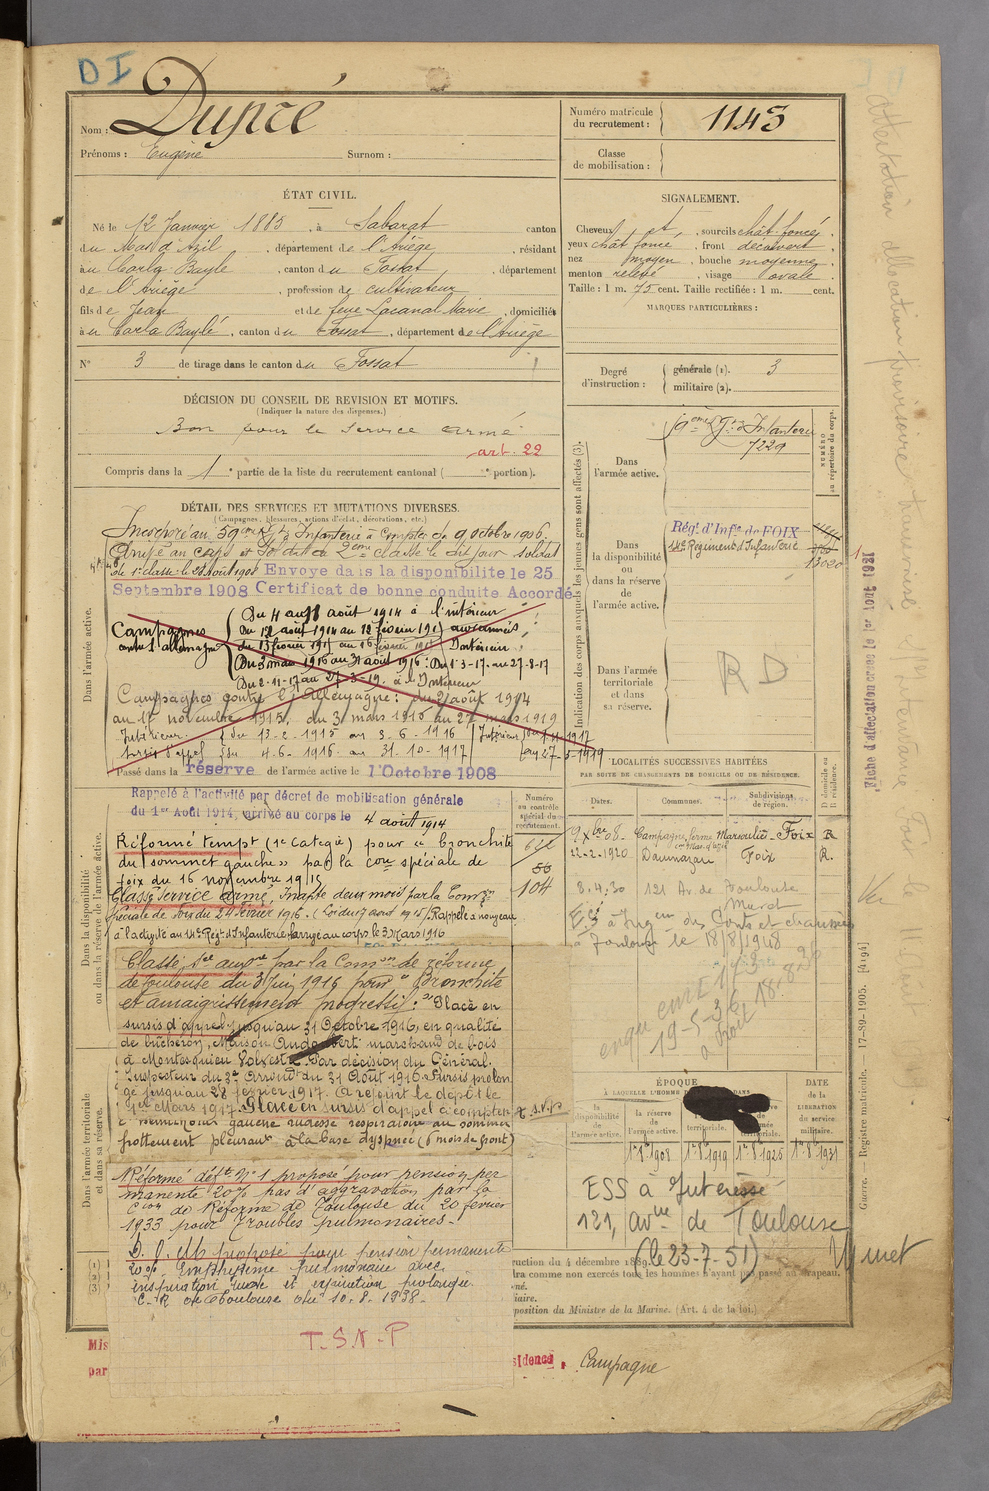 DI
Nom : Dupré
Prénoms : Eugène Surnom :
Numéro matricule du recrutement : 1143
Classe de mobilisation :
ÉTAT CIVIL.
Né le 12 Janvier 1885, à Sabarat canton
du Mas d'Azil, département de l'Ariège, résidant
au Carla-Bayle, canton du Fossat, département
de l'Ariège, profession de cultivateur
fils de Jean et de feue Lacanal Marie, domiciliés
au Carla Baylé, canton du Fossat, département de l'Ariège
N° 3 de tirage dans le canton du Fossat
SIGNALEMENT.
Cheveux et, sourcils chât. foncé,
yeux chât foncé, front découvert,
nez moyen, bouche moyenne,
menton relevé, visage ovale.
Taille : 1 m. 75 cent. Taille rectifiée : 1 m. cent.
MARQUES PARTICULIÈRES :
Degré d'instruction : générale (1). 3
militaire (2).
DÉCISION DU CONSEIL DE REVISION ET MOTIFS.
(Indiquer la nature des dispenses.)
Bon pour le service armé
art. 22
Compris dans la 1e partie de la liste du recrutement cantonal ( e portion).
DÉTAIL DES SERVICES ET MUTATIONS DIVERSES.
(Campagnes, blessures, actions d'éclat, décorations, etc.)
Incorporé au 59ème Rgt d'Infanterie à compter du 9 octobre 1906.
Arrivé au corps et soldat de 2ème classe le dit jour soldat
de 1e classe le 28 août 1908 Envoyé dans la disponibilité le 25
Septembre 1908 Certificat de bonne conduite Accordé.
Campagnes contre l'allemagne
Du 4 au 11 août 1914 à l'intérieur
Du 12 août 1914 au 12 février 1915 aux armées
du 13 février 1915 au 16 février 1915 Intérieur
Du 3 mars 1916 au 31 août 1916 : Du 1-3-17 au 27-8-17
Du 2-11-17 au 27-3-19. à l'Intérieur
Campagnes contre l'Allemagne : du 2 août 1914
au 15 novembre 1915, du 3 mars 1915 au 27 mars 1919
Intérieur. du 13-2-1915 au 3-6-1916 Intérieur du 1-11-1917
sursis d'appel du 4-6-1916 au 31-10-1917 au 27-5-1919
Passé dans la réserve de l'armée active le 1 Octobre 1908
Rappelé à l'activité par décret de mobilisation générale
du 1er Août 1914, arrivé au corps le 4 août 1914
Réformé tempt (1e Catégie) pour « bronchite
du sommet gauche » par la con spéciale de
foix du 16 novembre 1915
Classé service armé, inapte deux mois par la Comon
spéciale de Foix du 24 février 1916. (Loi du 17 août 1915) Rappelé à nouveau
à l'activité au 14e Régt d'Infanterie arrivé au corps le 3 Mars 1916
Classé Sce auxre par la Comon de réforme
de Toulouse du 3 Juin 1916 pour Bronchite
et amaigrissement progressif. Placé en
sursis d'appel jusqu'au 31 Octobre 1916, en qualité
de bûcheron, Maison marchand de bois
à Montesquieu Volvestre. Par décision du Général.
Inspecteur du 3e Arrondt du 31 Août 1916. Sursis prolon
gé jusqu'au 28 février 1917. A rejoint le dépôt le
1er Mars 1917. Placé en sursis d'appel à compter T.S.V.P
gauche rudesse respiratoire au sommet
frottement pleuraux à la base dyspnée (6 mois de front)
Réformé déft N° 1 proposé pour pension per
manente 20% pas d'aggravation par la
Cion de Réforme de Toulouse du 20 février
1933 pour Troubles pulmonaires.
D. I. Mb proposé pour pension permanente
20%. Emphysème pulmonaire avec
inspiration rude et expiration prolongée
C. R. de Toulouse du 10.8.1938.
T.S.V.P
Dans l'armée active.
Dans la disponibilité ou dans la réserve de l'armée active.
Dans l'armée territoriale et dans sa réserve.
Numéro au contrôle spécial du recrutement.
104
Indication des corps auxquels les jeunes gens sont affectés (3).
NUMÉRO au répertoire du corps.
Dans l'armée active.
59eme Rgt d'Infanterie
7229
Dans la disponibilité ou dans la réserve de l'armée active.
Régt d'Infie de FOIX
14e Régiment d'Infanterie
13020
Dans l'armée territoriale et dans sa réserve.
RD
LOCALITÉS SUCCESSIVES HABITÉES
PAR SUITE DE CHANGEMENTS DE DOMICILE OU DE RÉSIDENCE.
Dates. Communes. Subdivisions de région. D domicile ou R résidence.
9 Xbre 08 - Campagne ferme Marsoulies - Foix R
con Mas-d'azil
22-2-1920 Daumazan Foix R.
8.4.30 121 Av. de Toulouse
Muret
à Toulouse le 18/8/1948
19-5-36
ÉPOQUE
À LAQUELLE L'HOMME DANS
la disponibilité de l'armée active.
la réserve de l'armée active.
territoriale.
DATE de la LIBÉRATION du service militaire.
1er 8bre 1908 1er 8bre 1919 1er 8bre 1925 1er 8bre 1931
ESS à Intéressé
121, avue de Toulouse
(le 23-7-51) Muret
ruction du 4 décembre 1889.
dra comme non exercés tous les hommes n'ayant pas passé au drapeau.
position du Ministre de la Marine. (Art. 4 de la loi.)
Mis
par
sidence, Campagne
Fiche d'affectation créée le 1er Août 1921
Guerre. — Registre matricule. — 17-89-1905. [4194]